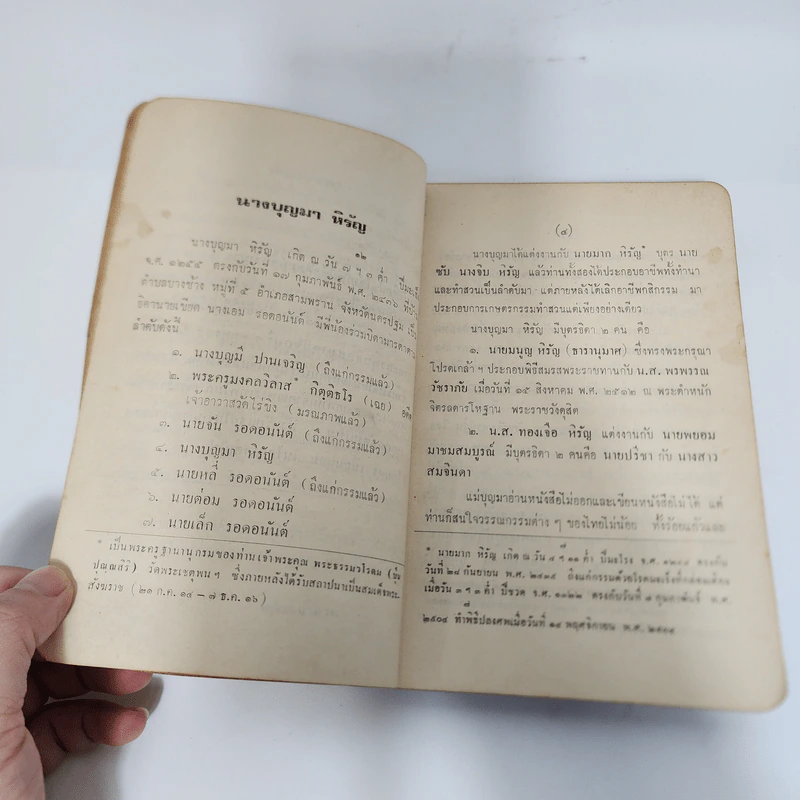 นางบุญมา หิรัญ
นางบุญมา หิรัญ เกิด ณ วัน ๗ ฯ ๓ ค่ำ ปีมะเส็ง
๑๒
จ.ศ. ๑๒๕๕ ตรงกับวันที่ ๑๗ กุมภาพันธ์ พ.ศ. ๒๔๓๖ ที่บ้าน
ตำบลบางช้าง หมู่ที่ ๕ อำเภอสามพราน จังหวัดนครปฐม เป็น
ธิดานายเขียด นางเอม รอดอนันต์ มีพี่น้องร่วมบิดามารดาตาม
ลำดับดังนี้
๑. นางบุญมี ปานเจริญ (ถึงแก่กรรมแล้ว)
๒. พระครูมงคลวิลาส* กิตฺติธโร (เฉย) อดีต
เจ้าอาวาสวัดไร่ขิง (มรณภาพแล้ว)
๓. นายจัน รอดอนันต์ (ถึงแก่กรรมแล้ว)
๔. นางบุญมา หิรัญ
๕. นายหลี่ รอดอนันต์ (ถึงแก่กรรมแล้ว)
๖. นายต่อม รอดอนันต์
๗. นายเล็ก รอดอนันต์
* เป็นพระครูฐานานุกรมของท่านเจ้าพระคุณ พระธรรมวโรดม (ปุ่น
ปุณฺณสิริ) วัดพระเชตุพนฯ ซึ่งภายหลังได้รับสถาปนาเป็นสมเด็จพระ
สังฆราช (๒๑ ก.ค. ๑๕ – ๗ ธ.ค. ๑๖)
(๔)
นางบุญมาได้แต่งงานกับ นายมาก หิรัญ* บุตร นาย
ซับ นางจีบ หิรัญ แล้วท่านทั้งสองได้ประกอบอาชีพทั้งทำนา
และทำสวนเป็นลำดับมา แต่ภายหลังได้เลิกอาชีพกสิกรรม มา
ประกอบการเกษตรกรรมทำสวนแต่เพียงอย่างเดียว
นางบุญมา หิรัญ มีบุตรธิดา ๒ คน คือ
๑. นายมนูญ หิรัญ (ธารานุมาศ) ซึ่งทรงพระกรุณา
โปรดเกล้า ฯ ประกอบพิธีสมรสพระราชทานกับ น.ส. พรพรรณ
วัชราภัย เมื่อวันที่ ๑๕ สิงหาคม พ.ศ. ๒๕๑๒ ณ พระตำหนัก
จิตรลดารโหฐาน พระราชวังดุสิต
๒. น.ส. ทองเจือ หิรัญ แต่งงานกับ นายพยอม
มาชมสมบูรณ์ มีบุตรธิดา ๒ คนคือ นายปรีชา กับ นางสาว
สมจินตา
แม่บุญมาอ่านหนังสือไม่ออกและเขียนหนังสือไม่ได้ แต่
ท่านก็สนใจวรรณกรรมต่าง ๆ ของไทยไม่น้อย ทั้งร้อยแก้วและ
* นายมาก หิรัญ เกิด ณ วัน ๔ ฯ ๑๑ ค่ำ ปีมะโรง จ.ศ. ๑๒๕๔ ตรงกับ
วันที่ ๒๘ กันยายน พ.ศ. ๒๔๓๕ ถึงแก่กรรมด้วยโรคมะเร็งที่
เมื่อวัน ๓ ฯ ๓ ค่ำ ปีชวด จ.ศ. ๑๓๒๒ ตรงกับวันที่ กุมภาพันธ์ พ.ศ.
๒๕๐๔ ทำพิธีปลงศพเมื่อวันที่ ๑๙ พฤศจิกายน พ.ศ. ๒๕๐๔